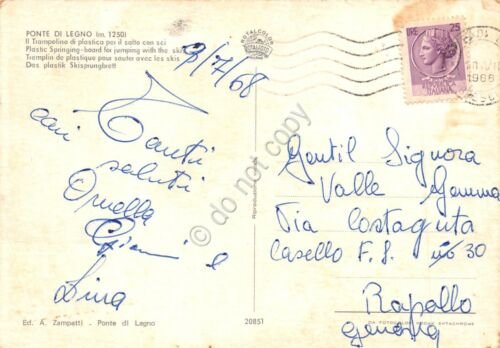 PONTE DI LEGNO (m. 1250)
Il Trampolino di plastica per il salto con sci
Plastic Springing-board for jumping with the skis
Tremplin de plastique pour sauter avec les skis
Das plastik Skisprungbrett
9/7/68
Tanti
cari saluti
Ornella
Gianni e
Lina
Ed. A. Zampatti - Ponte di Legno
20851
LIRE 25
ITALIANA
Gentil Signora
Valle Gemma
Via Costaguta
Casello F.S. 30
Rapallo
Genova
do not copy